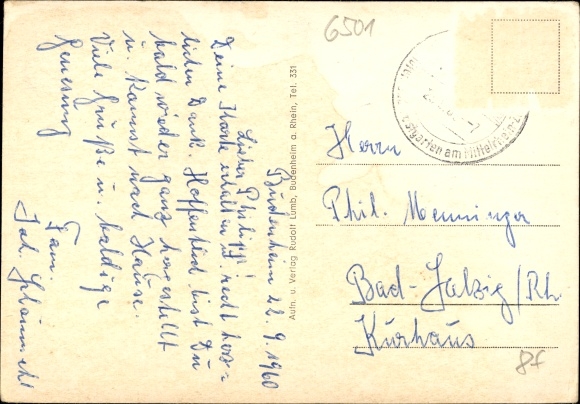 Budenheim 22.9.1960
Lieber Philipp!
Deine Karte erhalten u. recht herz=
lichen Dank. Hoffentlich bist Du
bald wieder ganz hergestellt
u. kannst nach Hause.
Viele Grüße u. baldige
Genesung
Fam.
Jak.
Aufn. u. Verlag Rudolf Lumb, Budenheim a. Rhein, Tel. 331
6501
garten am Mittelrhein
Herrn
Phil. Menninger
Bad-Salzig/Rh.
Kurhaus
8f